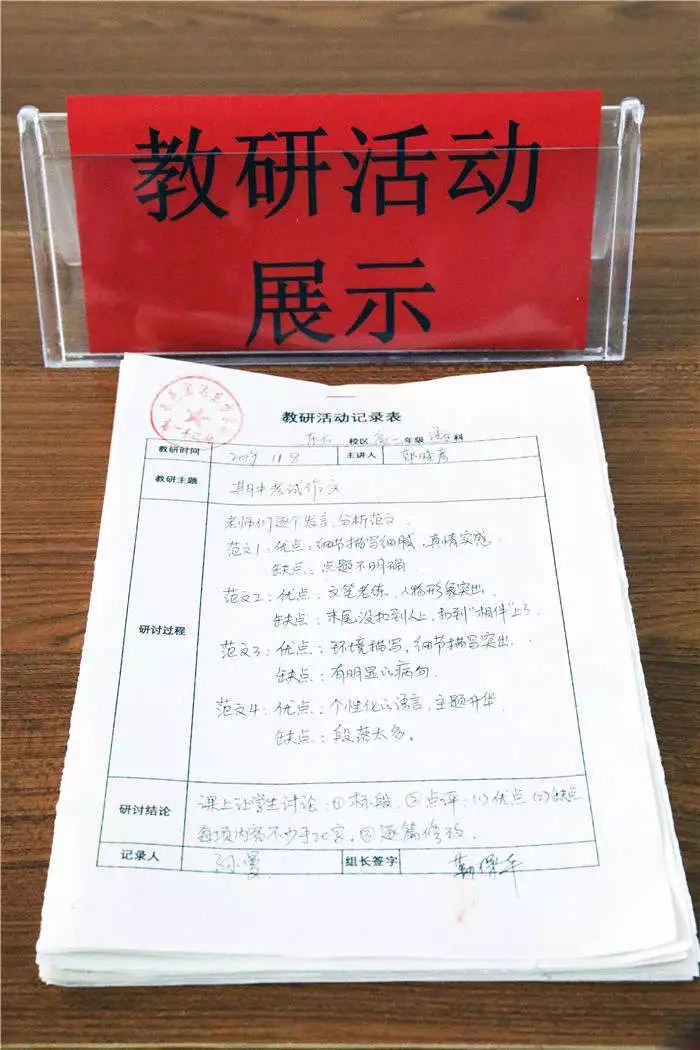 教研活动
展示
教研活动记录表
校区 高一 年级 语文 科
教研时间 2019 11 8 主讲人
教研主题 期中考试作文
研讨过程
老师们逐个发言,分析范文.
范文1:优点:细节描写细腻,真情实感.
缺点:点题不明确
范文2:优点:文笔老练、人物形象突出.
缺点:末尾没扣到人上,扣到“相伴”上了
范文3:优点:环境描写,细节描写突出.
缺点:有明显的病句.
范文4:优点:个性化的语言,主题升华
缺点:段落太多.
研讨结论 课上让学生讨论:①标段,②点评:(1)优点(2)缺点
每项内容不少于20字,③逐篇修改.
记录人 组长签字